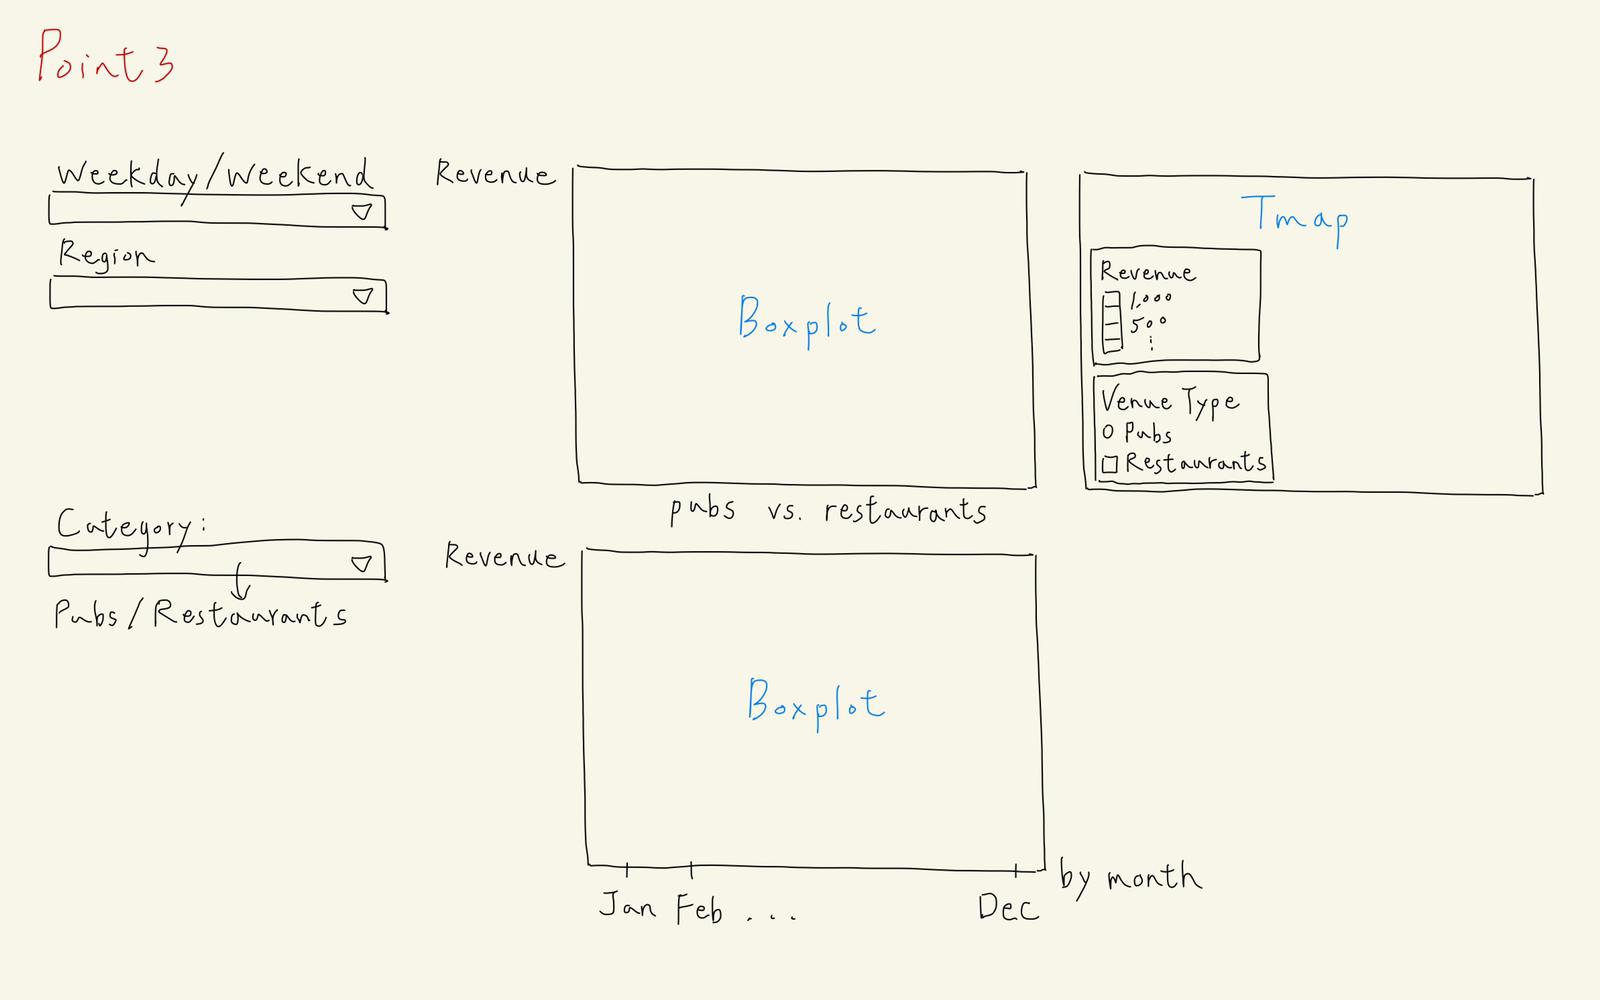 Point 3
Weekday/Weekend
Region
Revenue
Boxplot
pubs vs. restaurants
Tmap
Revenue
1,000
500
⋮
Venue Type
Pubs
Restaurants
Category:
Pubs/Restaurants
Revenue
Boxplot
Jan Feb ... Dec
by month